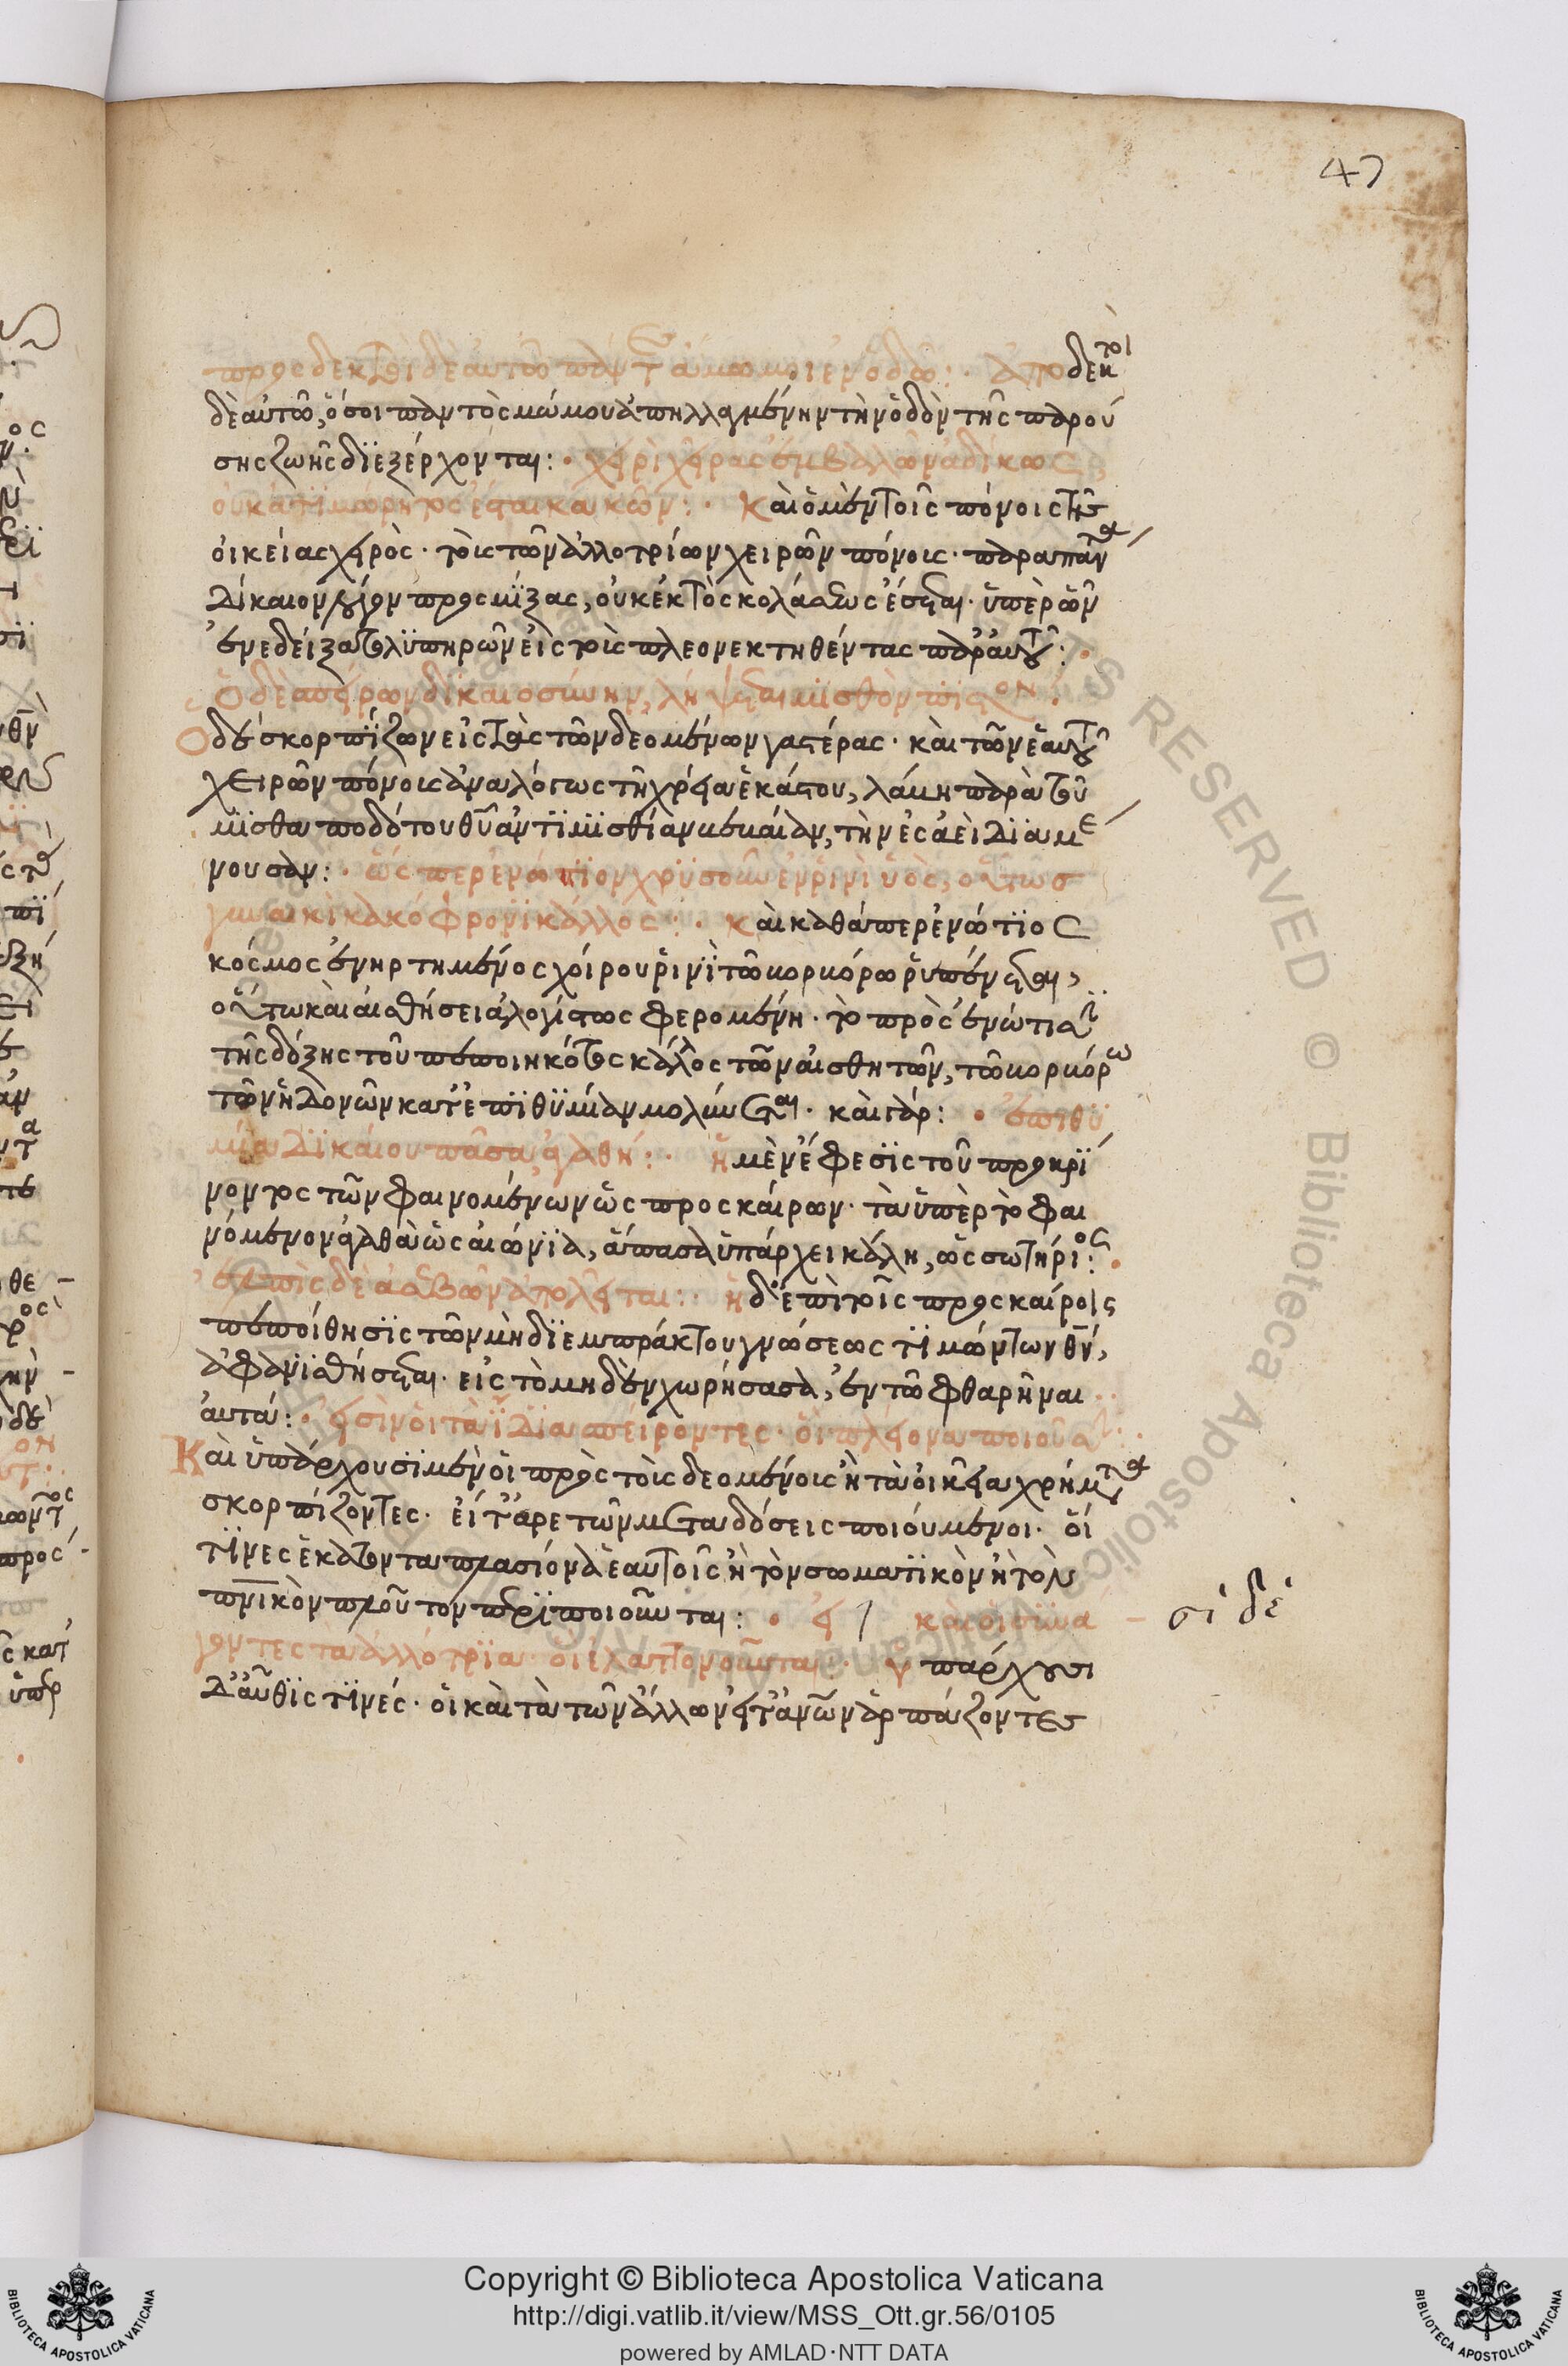 47
προσδεκτοὶ δὲ αὐτῶ πάντες ἄμωμοι ἐν ὁδῶ: · Ἀποδεκτοὶ
δὲ αὐτῶ, ὅσοι παντὸς μώμου ἀπηλλαγμένην τὴν ὁδὸν τῆς παρού
σης ζωῆς διεξέρχονται: · χειρὶ χεῖρας ἐμβαλὼν ἀδίκως
οὐκ ἀτιμώρητος ἔσται κακῶν: · Καὶ ὁ μὲν τοῖς πόνοις τῆς
οἰκείας χειρὸς · τοῖς τῶν ἀλλοτρίων χειρῶν πόνοις · παρὰ πάντα
δίκαιον λόγον προσμίξας, οὐκ ἐκτὸς κολάσεως ἔσεται · ὑπὲρ ὧν
ἐνεδείξατο λυπηρῶν εἰς τοὺς πλεονεκτηθέντας παρ' αὐτοῦ: ·
Ὁ δὲ σπείρων δικαιοσύνην, λήψεται μισθὸν πιστόν:
Ὁ δὲ σκορπίζων εἰς τὰς τῶν δεομένων γαστέρας · καὶ τῶν ἑαυτοῦ
χειρῶν πόνοις ἀναλόγως τῆ χρεία ἑκάστου, λάμη παρὰ τοῦ
μισθαποδότου θῦ ἀντιμισθίαν κεκαίαν, τὴν ἐς ἀεὶ διαμέ
νουσαν: · ὥσπερ ἐνώτιον χρυσοῦν ἐν ρινὶ ὑὸς, οὕτως
γυναικὶ κακόφρονι κάλλος: · Καὶ καθάπερ ἐνώτιος
κόσμος ἐνηρτημένος χοίρου ρινὶ τῶ κορκόρω ρυπαίνεται,
οὕτω καὶ αἰσθήσει ἀλογίστως φερομένη · τὸ πρὸς ἐνώτια
τῆς δόξης τοῦ πεποιηκότος κάλλος τῶν αἰσθητῶν, τῶ κορκόρω
τῶν ἡδονῶν κατ' ἐπιθυμίαν μολύνεται · καὶ γάρ: · ἐπιθυ
μία δικαίου πᾶσα ἀγαθή: · ἡ μὲν ἔφεσις τοῦ προκρί
νοντος τῶν φαινομένων ὡς προσκαίρων · τὰ ὑπὲρ τὸ φαι
νόμενον ἀγαθὰ ὡς αἰώνια, ἅπασα ὑπάρχει καλὴ, ὡς σωτήριος: ·
ἐλπὶς δὲ ἀσεβῶν ἀπολεῖται: · ἡ δ' ἐπὶ τοῖς προσκαίροις
πεποίθησις τῶν μὴ δι' ἐμπράκτου γνώσεως τιμώντων θν,
ἀφανισθήσεται · εἰς τὸ μηδὲν χωρήσασα, ἐν τῶ φθαρῆναι
αὐτά: · εἰσὶν οἱ τὰ ἴδια σπείροντες · οἳ πλείονα ποιοῦσι: ·
Καὶ ὑπάρχουσι μὲν οἱ πρὸς τοῖς δεομένοις ἢ τὰ οἰκεῖα χρήματα
σκορπίζοντες · εἴτ' ἀρετῶν μεταδόσεις ποιούμενοι · οἵ
τινες ἑκατονταπλασίονα ἑαυτοῖς ἢ τὸν σωματικὸν ἢ τὸν
πνικὸν πλοῦτον περιποιοῦνται: · εἰ καὶ οἱ συνά – οἱ δὲ
γοντες τὰ ἀλλότρια · οἳ ἐλαττονοῦνται: · ὑπάρχουσι
δ' αὖθις τινές · οἳ καὶ τὰ τῶν ἄλλων εἴτ' ἀνῶν ἁρπάζοντες
RIGHTS RESERVED © Biblioteca Apostolica Vaticana
Copyright © Biblioteca Apostolica Vaticana
http://digi.vatlib.it/view/MSS_Ott.gr.56/0105
powered by AMLAD·NTT DATA
BIBLIOTECA APOSTOLICA VATICANA
BIBLIOTECA APOSTOLICA VATICANA